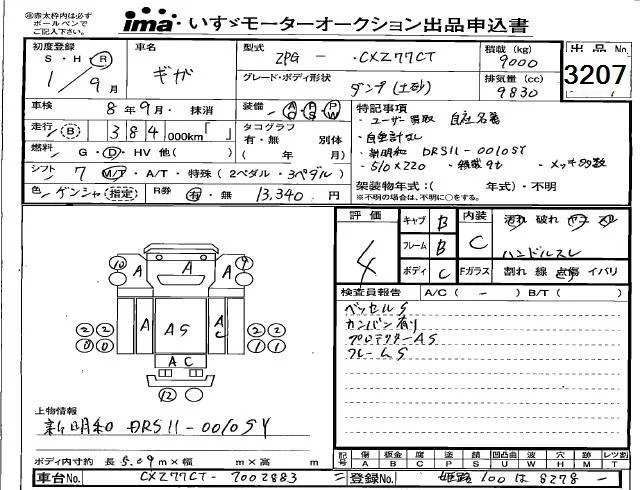 ㊟赤太枠内は必ず
ボールペンで
ご記入下さい。
ima いすゞモーターオークション出品申込書
初度登録 S・H・Ⓡ 1/9月
車名 ギガ
型式 2PG - CXZ77CT
積載(kg) 9000
グレード・ボディ形状 ダンプ(土砂)
排気量(cc) 9830
出品No. 3207
車検 8年9月・抹消
装備 AC PS PW
走行(B) 384,000km「 」
タコグラフ 有・無 別体
( 年 月)
燃料 G・D・HV 他( )
シフト 7 M/T・A/T・特殊(2ペダル・3ペダル)
色 ゲンシャ(指定) R券 有・無 13,340円
特記事項
・ユーザー買取 自社名義
・自重計なし
・新明和 DRS11-0010SY
・510×220 ・積載9t ・メッキ多数
架装物年式:( 年式)・不明
※不明の場合は、不明に○をする。
評価 4
キャブ B
フレーム B
ボディ C
内装 C
汚れ 破れ ヤケ スレ
ハンドルスレ
Fガラス 割れ 線 点傷 イバリ
検査員報告 A/C( - ) B/T( )
ベッセルS
カンバン有り
プロテクターAS
フレームS
10 A A 9
A AS A C
2 2 2 2
0 0 1 1
A C
12
上物情報
新明和 DRS11-0010SY
ボディ内寸約 長 5.09m×幅 m×高 m
記号 傷 A 板金 B 腐 C 塗 P 錆 S 凹凸曲 U 波 W 穴 H 跡 M レツ割 T
車台No. CXZ77CT-7002883
登録No. 姫路100は8278